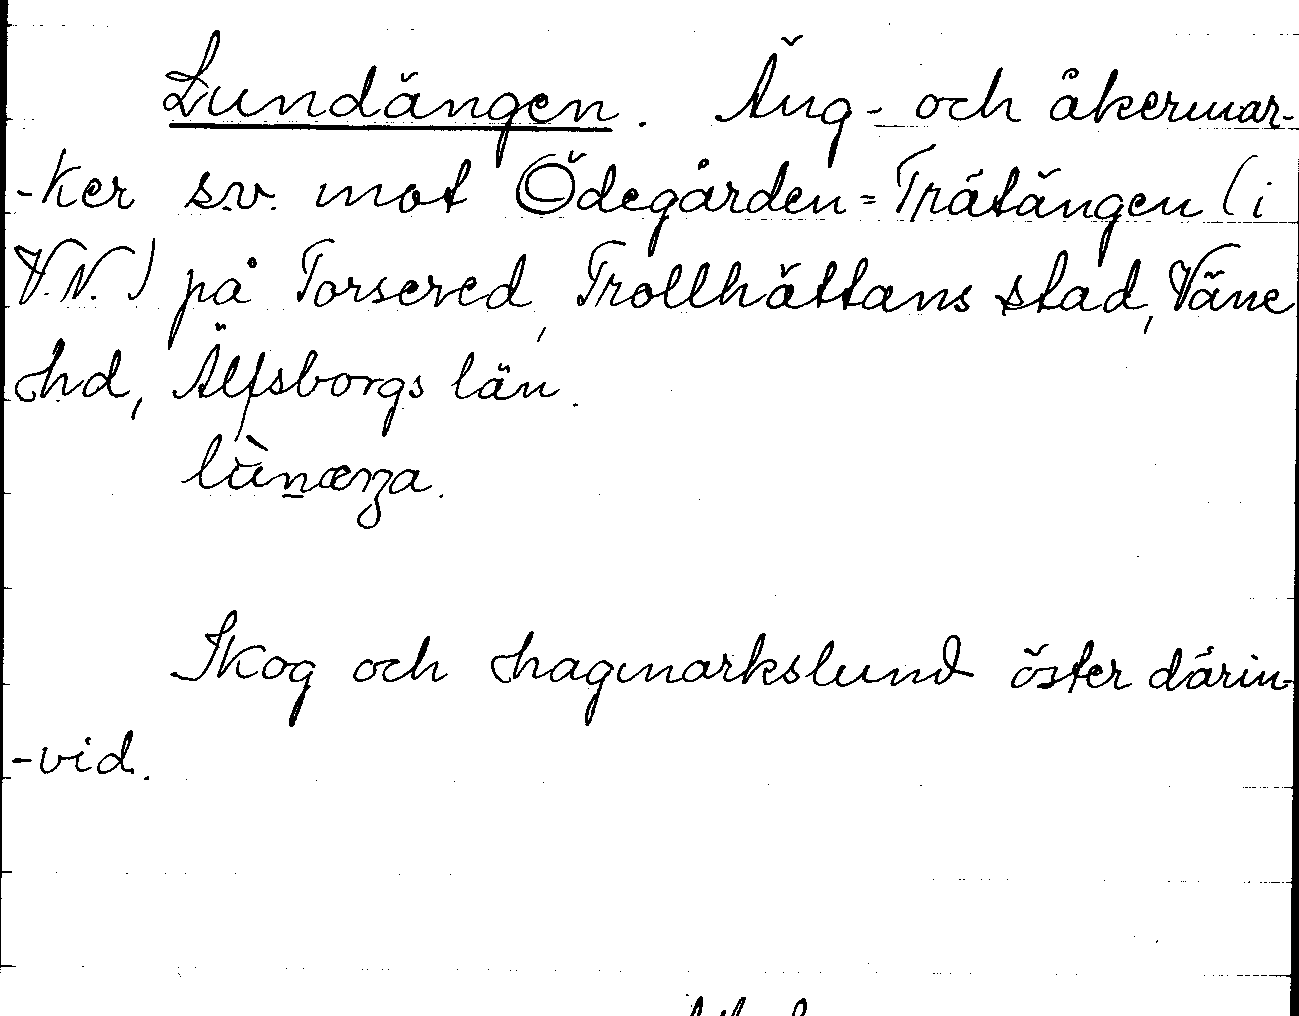 Lundängen. Äng- och åkermar-
-ker s.v. mot Ödegården=Trätängen (i
V.N.) på Torsered, Trollhättans stad, Väne
hd, Älfsborgs län.
lùnæŋa.
Skog och hagmarkslund öster därin-
-vid.